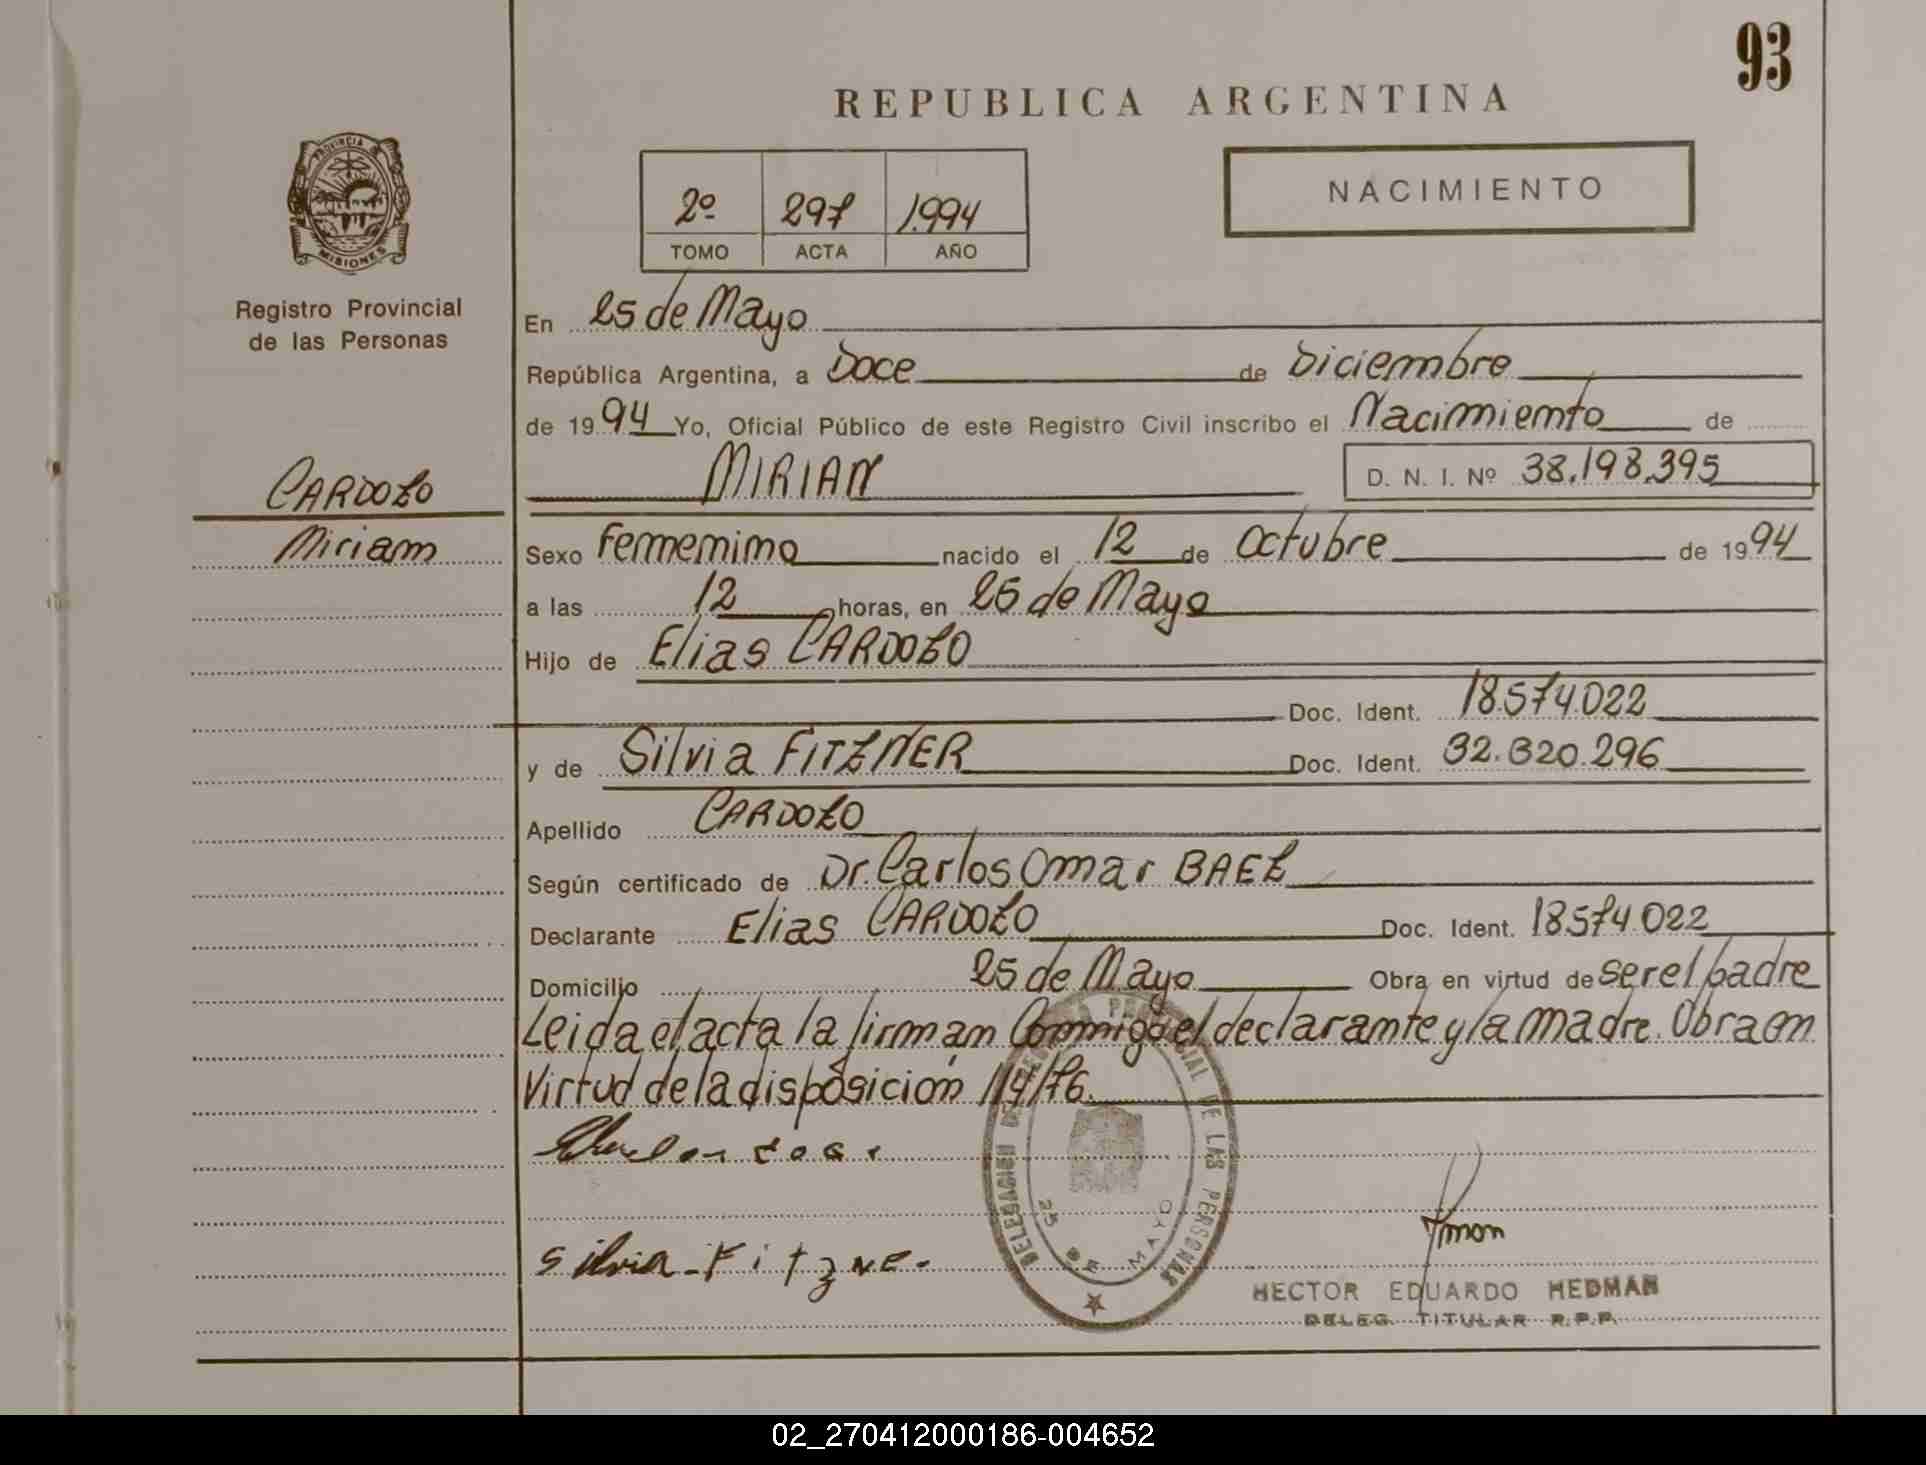 93
REPUBLICA ARGENTINA
PROVINCIA DE
MISIONES
Registro Provincial
de las Personas
2º 297 1.994
TOMO ACTA AÑO
NACIMIENTO
En 25 de Mayo
República Argentina, a Doce de Diciembre
de 1994 Yo, Oficial Público de este Registro Civil inscribo el Nacimiento de
MIRIAN D. N. I. Nº 38.198.395
CARDOZO
Miriam
Sexo Femenino nacido el 12 de Octubre de 1994
a las 12 horas, en 25 de Mayo
Hijo de Elias CARDOZO
Doc. Ident. 18.574.022
y de Silvia FITZNER Doc. Ident. 32.320.296
Apellido CARDOZO
Según certificado de Dr. Carlos Omar BAEZ
Declarante Elias CARDOZO Doc. Ident. 18.574.022
Domicilio 25 de Mayo Obra en virtud de ser el padre
Leida el acta la firman Conmigo el declarante y la madre. Obra en
Virtud de la disposición 114/76.
DELEGACION DEL REGISTRO PROVINCIAL DE LAS PERSONAS
25 DE MAYO
Silvia Fitzne.
HECTOR EDUARDO HEDMAN
DELEG. TITULAR R.P.P.
02_270412000186-004652